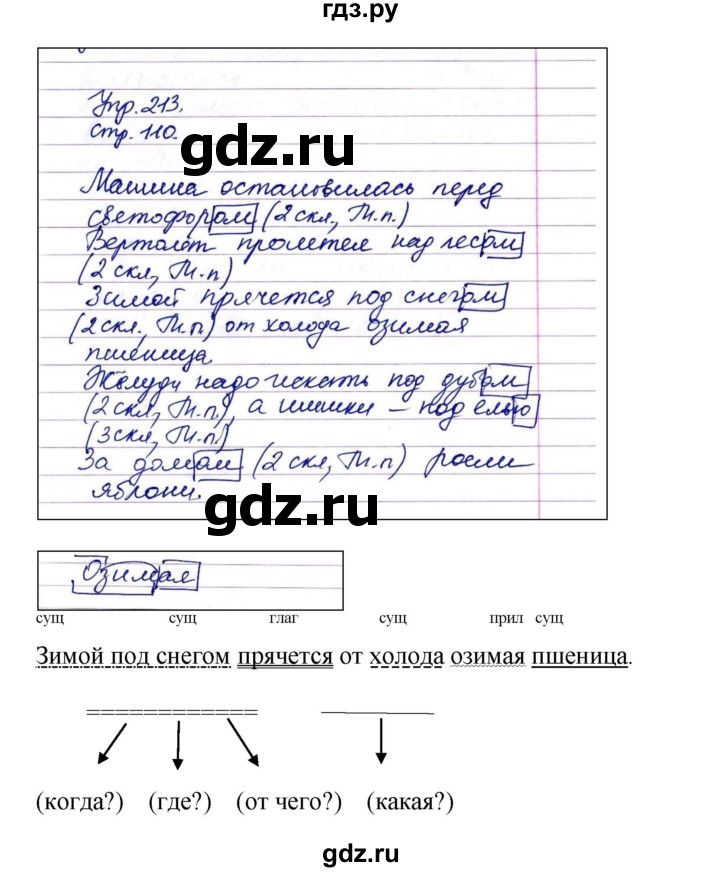 гдз.ру
Упр. 213.
Стр. 110.
gdz.ru
Машина остановилась перед
светофором (2 скл, Т.п.)
Вертолёт пролетел над лесом
(2 скл, Т.п)
Зимой прячется под снегом
(2 скл., Т.п.) от холода озимая
пшеница.
Жёлуди надо искать под дубом
(2 скл, Т.п.), а шишки – под елью
(3 скл, Т.п.)
За домом (2 скл, Т.п) росли
яблони.
gdz.ru
Озимая
сущ сущ глаг сущ прил сущ
Зимой под снегом прячется от холода озимая пшеница.
(когда?) (где?) (от чего?) (какая?)
gdz.ru